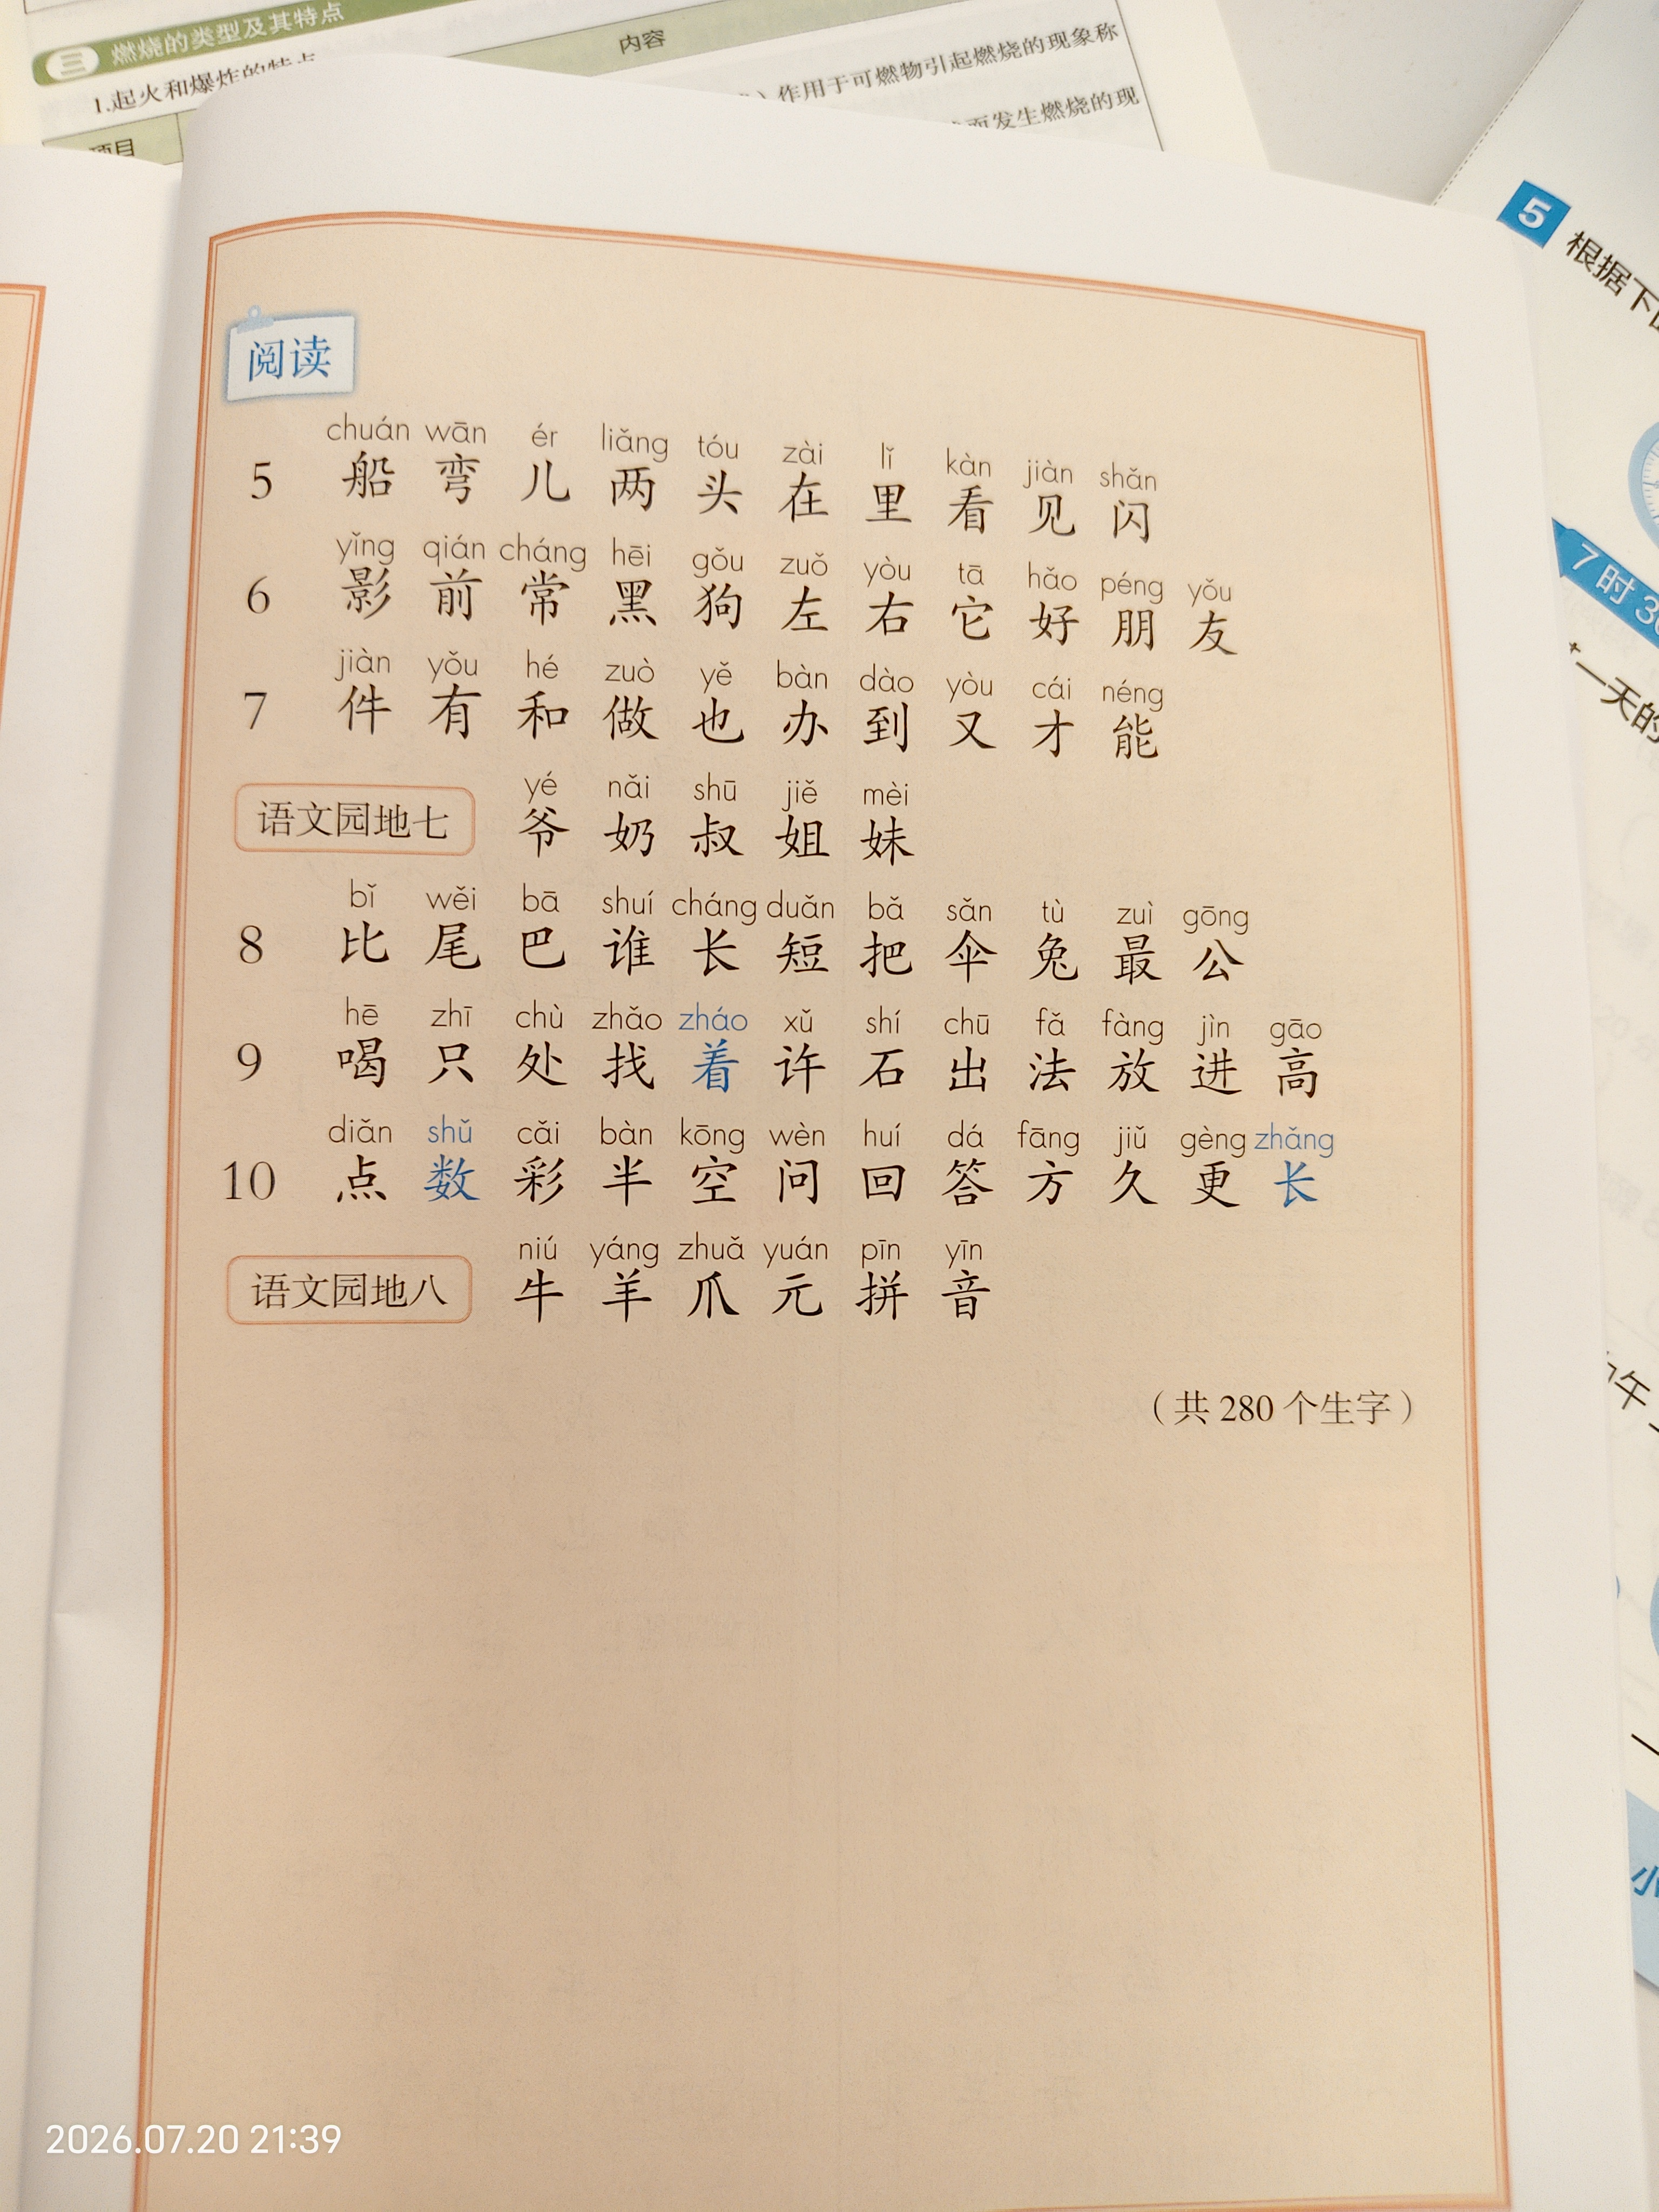 三 燃烧的类型及其特点
1.起火和爆炸的特点
项目
内容
作用于可燃物引起燃烧的现象称
而发生燃烧的现
阅读
chuán wān ér liǎng tóu zài lǐ kàn jiàn shǎn
5 船 弯 儿 两 头 在 里 看 见 闪
yǐng qián cháng hēi gǒu zuǒ yòu tā hǎo péng yǒu
6 影 前 常 黑 狗 左 右 它 好 朋 友
jiàn yǒu hé zuò yě bàn dào yòu cái néng
7 件 有 和 做 也 办 到 又 才 能
yé nǎi shū jiě mèi
语文园地七 爷 奶 叔 姐 妹
bǐ wěi bā shuí cháng duǎn bǎ sǎn tù zuì gōng
8 比 尾 巴 谁 长 短 把 伞 兔 最 公
hē zhī chù zhǎo zháo xǔ shí chū fǎ fàng jìn gāo
9 喝 只 处 找 着 许 石 出 法 放 进 高
diǎn shǔ cǎi bàn kōng wèn huí dá fāng jiǔ gèng zhǎng
10 点 数 彩 半 空 问 回 答 方 久 更 长
niú yáng zhuǎ yuán pīn yīn
语文园地八 牛 羊 爪 元 拼 音
（共 280 个生字）
5 根据下
7 时 3
一天的
午
小
2026.07.20 21:39